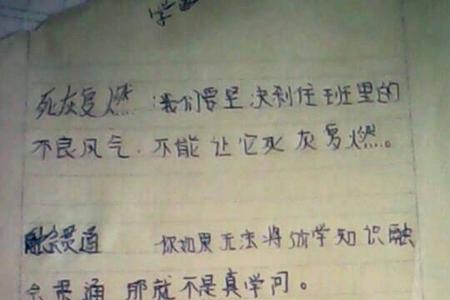 学
死灰复燃 我们要坚决刹住班里的
不良风气.不能让它死灰复燃。
融会贯通 你如果无法将所学知识融
会贯通 那就不是真学问。